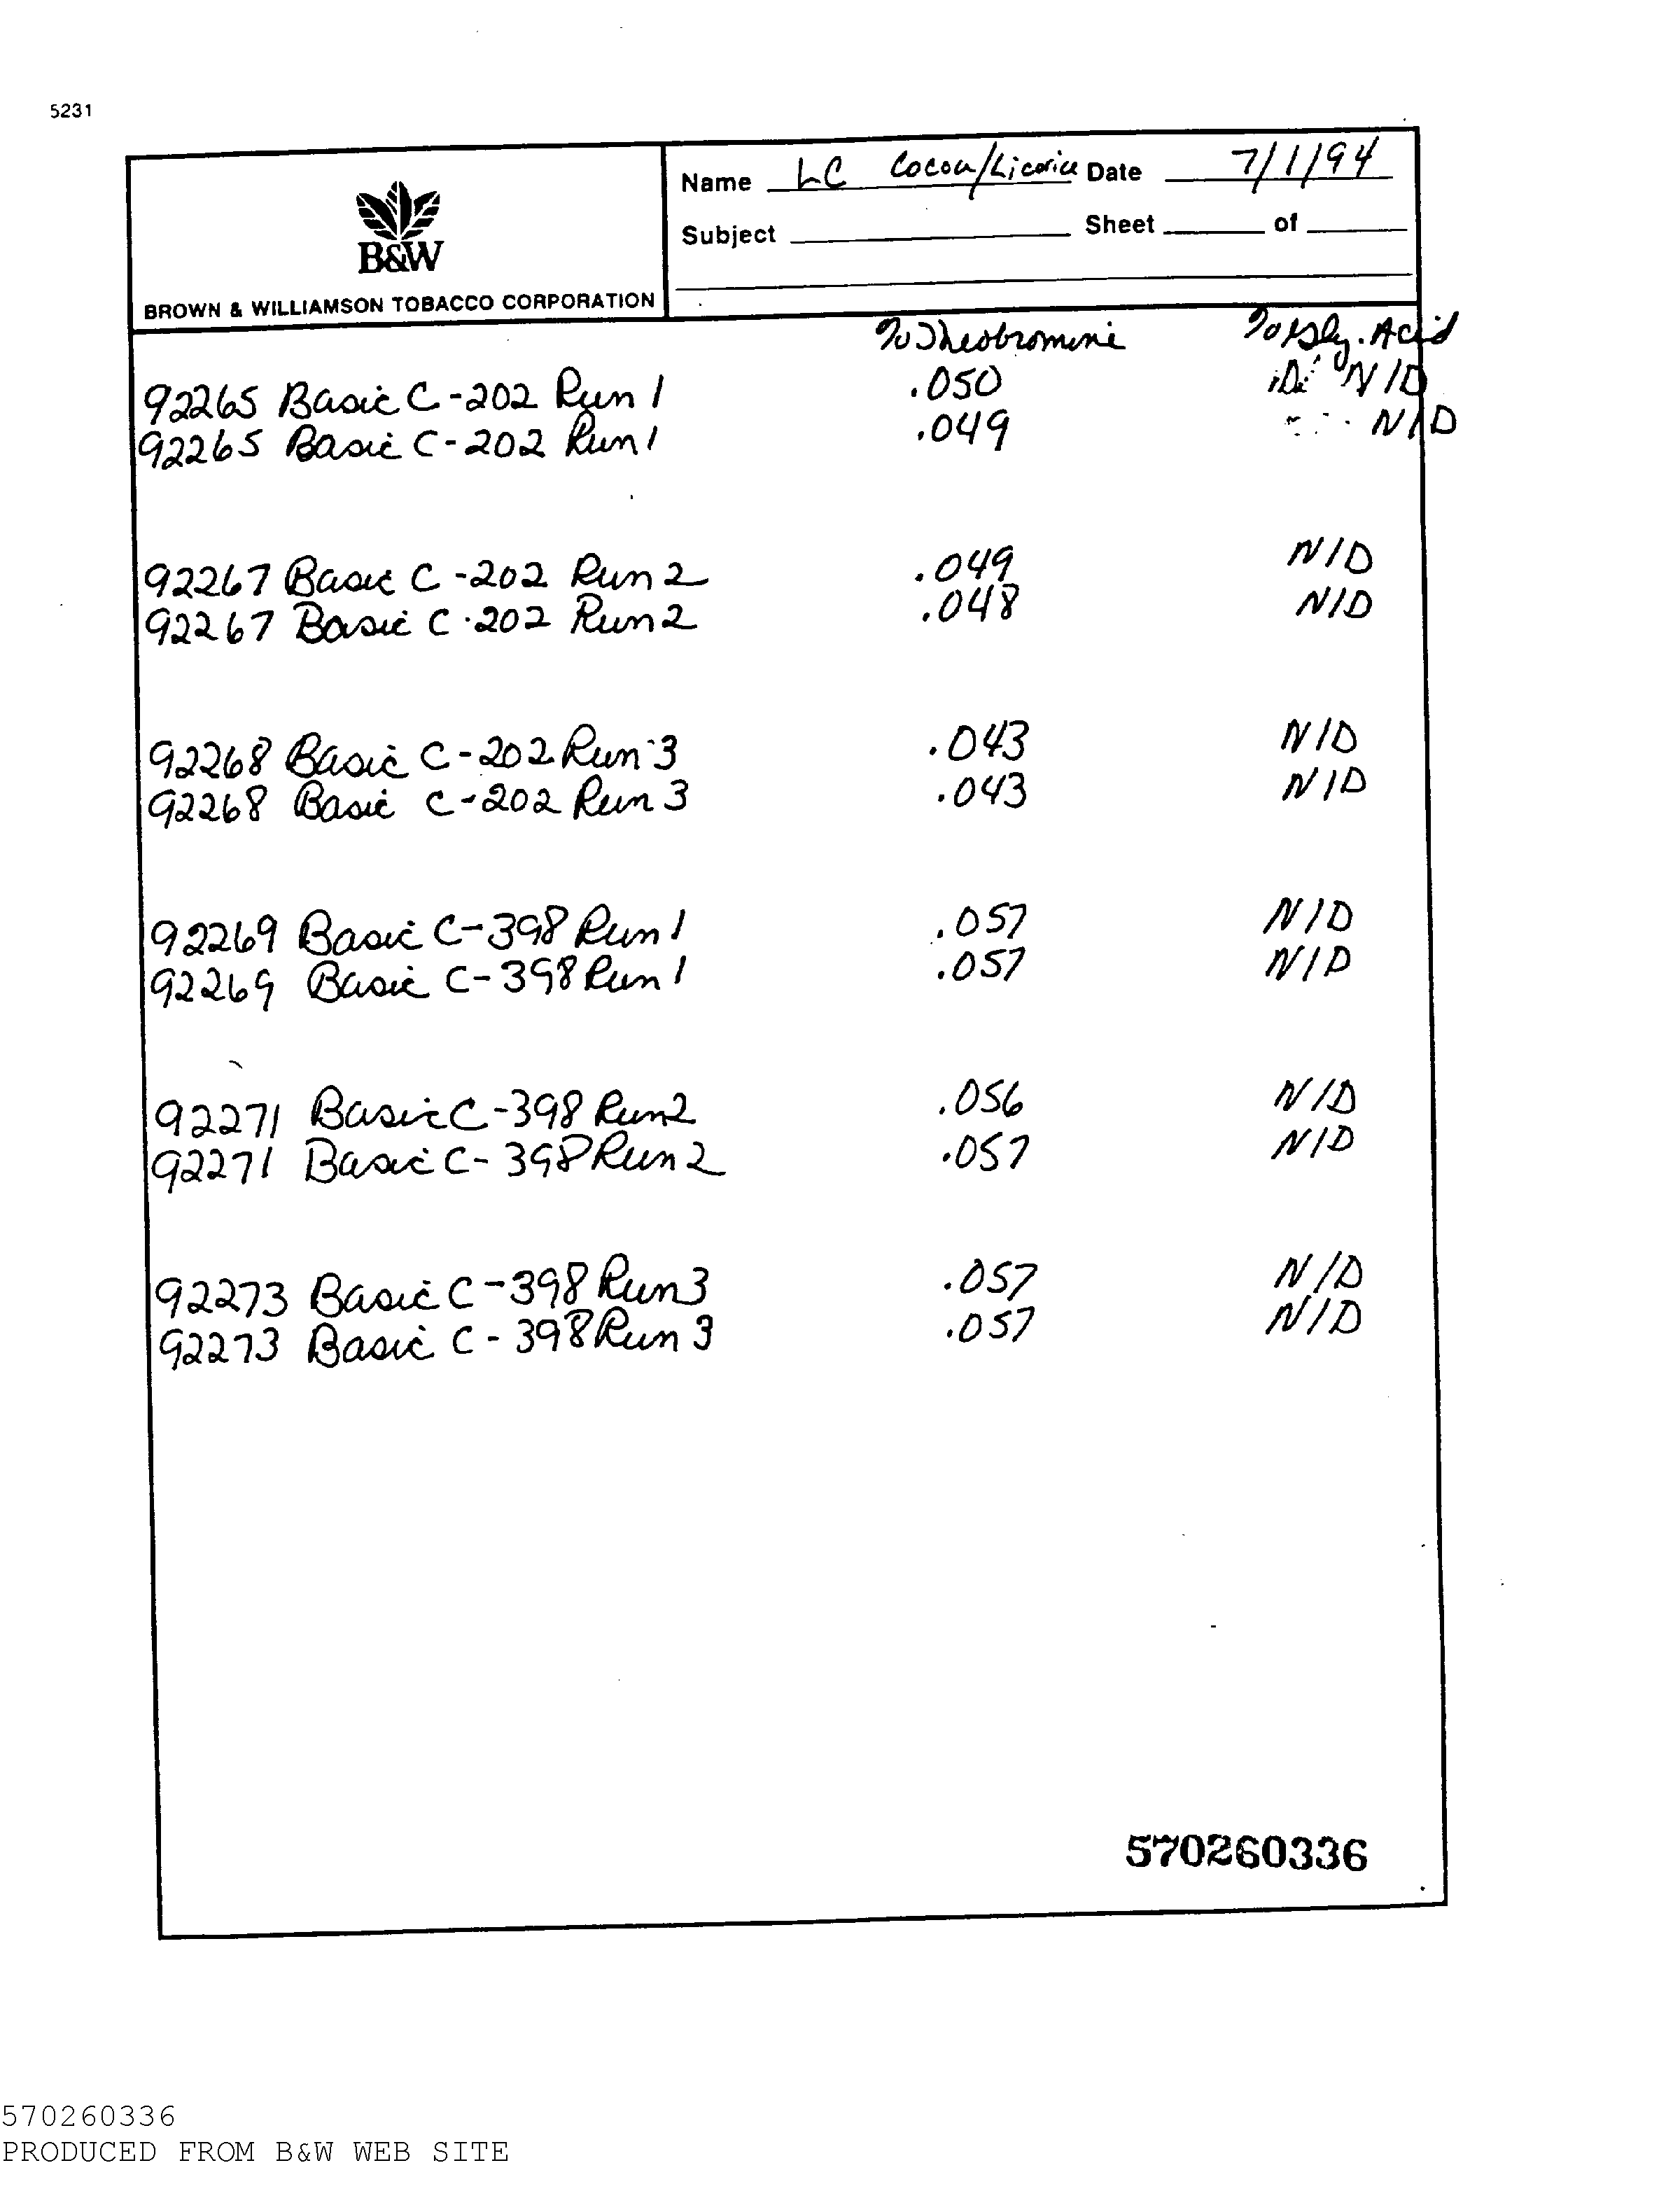 5231
Name LC Cocoa/Licorice Date 7/1/94
Subject Sheet of
B&W
BROWN & WILLIAMSON TOBACCO CORPORATION
% Theobromine % Gly. Acid
92265 Basic C-202 Run 1 .050 N/D
92265 Basic C-202 Run 1 .049 N/D
92267 Basic C-202 Run 2 .049 N/D
92267 Basic C-202 Run 2 .048 N/D
92268 Basic C-202 Run 3 .043 N/D
92268 Basic C-202 Run 3 .043 N/D
92269 Basic C-398 Run 1 .057 N/D
92269 Basic C-398 Run 1 .057 N/D
92271 Basic C-398 Run 2 .056 N/D
92271 Basic C-398 Run 2 .057 N/D
92273 Basic C-398 Run 3 .057 N/D
92273 Basic C-398 Run 3 .057 N/D
570260336
570260336
PRODUCED FROM B&W WEB SITE